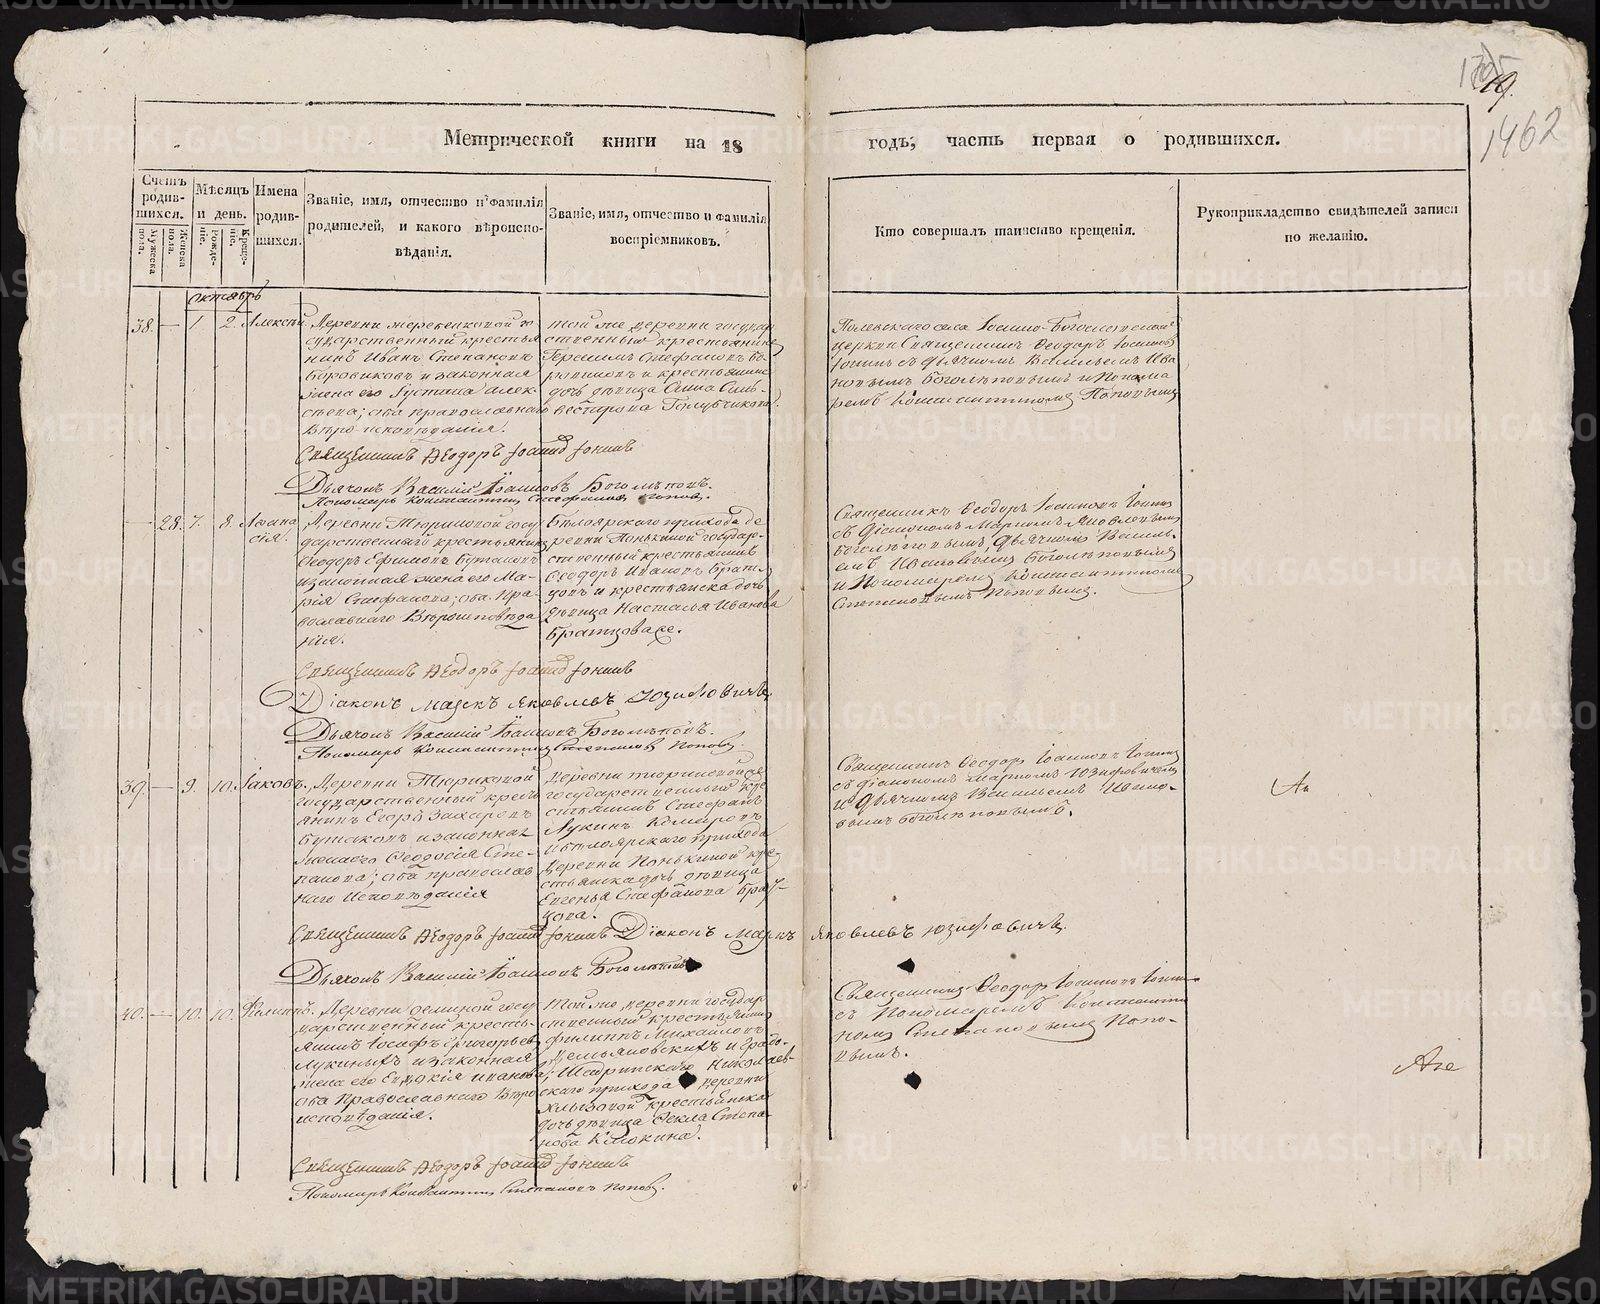 19.
1462
Метрической книги на 18 годъ, часть первая о родившихся.
Счетъ родив-шихся.
Мужеска пола.
Женска пола.
Мѣсяцъ и день.
Рожде-ніе.
Креще-ніе.
Имена родив-шихся.
Званіе, имя, отчество и фамилія
родителей, и какого вѣроиспо-
вѣданія.
Званіе, имя, отчество и фамилія
воспріемниковъ.
Кто совершалъ таинство крещенія.
Рукоприкладство свидѣтелей записи
по желанію.
октябрь
38. — 1 2. Алексѣй.
Деревни
сударственный крестья
нинъ Иванъ Степановъ
Боровиковъ и законная
жена его Іустина Алек-
сѣева; оба православнаго
Вѣроисповѣданія.
той же деревни государ
ственный крестьянинъ
Герасимъ Стефановъ Бо-
ровиковъ и крестьянина
дочь дѣвица Анна Силь-
вестрова Голубчикова.
церкви Священникъ Ѳеодоръ Іоанновъ
Іонинъ съ дьячкомъ Васильемъ Ива
новымъ Боголѣповымъ и Понома
ремъ Константиномъ Поповымъ
Священникъ Ѳеодоръ Іоанновъ Іонинъ
Дьячокъ Василій Іоанновъ Боголѣповъ.
Пономарь Константинъ Стефановъ Поповъ.
— 28. 7. 8. Аѳана
сія.
Деревни Тюриковой госу
дарственный крестьянинъ
Ѳеодоръ Ефимовъ Бутаковъ
и законная жена его Ма-
рія Стефанова; оба Пра-
вославнаго Вѣроисповѣда
нія.
Бѣлоярскаго прихода де
ревни Понькиной государ-
ственный крестьянинъ
Ѳеодоръ Ивановъ Брат-
цовъ и крестьянска дочь
дѣвица Настасья Иванова
Братцова же.
Священникъ Ѳеодоръ Іоанновъ Іонинъ
съ Діакономъ Маркомъ Яковлевымъ
Боголѣповымъ, Дьячкомъ Василь-
емъ Ивановымъ Боголѣповымъ
и Пономаремъ Константиномъ
Степановымъ Поповымъ.
Священникъ Ѳеодоръ Іоанновъ Іонинъ
Діаконъ Маркъ Яковлевъ Юзифовичъ
Дьячокъ Василій Іоанновъ Боголѣповъ.
Пономарь Константинъ Степановъ Поповъ.
39. — 9. 10. Іаковъ.
Деревни Тюриковой
государственный кресть
янинъ Егоръ Захаровъ
Бутаковъ и законная
жена его Ѳеодосія Сте-
панова; оба православ
наго исповѣданія
деревни Тюриковой
государственный кре
стьянинъ Стефанъ
Лукинъ Комаровъ
и Бѣлоярскаго прихода
Деревни Понькиной кре
стьянска дочь дѣвица
Евгенья Стефанова Брат-
цова.
Священникъ Ѳеодоръ Іоанновъ Іонинъ
съ діакономъ Маркомъ Юзифовичемъ
и Дьячкомъ Васильемъ Ивано-
вымъ Боголѣповымъ.
Священникъ Ѳеодоръ Іоанновъ Іонинъ Діаконъ Маркъ Яковлевъ Юзифовичъ.
Дьячокъ Василій Іоанновъ Боголѣповъ
40. — 10. 10. Филиппъ.
Деревни госу
дарственный кресть-
янинъ Іосифъ Григорьевъ
Лукиныхъ и законная
жена его Евдокія Иванова;
оба Православнаго Вѣро
исповѣданія.
Той же деревни государ
ственный крестьянинъ
Филиппъ Михайловъ
Демьяновскихъ и градо-
Шадринскаго Николаев-
скаго прихода деревни
Хлызовой крестьянска
дочь дѣвица Ѳекла Степа-
нова Клюкина.
Священникъ Ѳеодоръ Іоанновъ Іонинъ
съ Пономаремъ Константи
номъ Степановымъ Попо-
вымъ.
Священникъ Ѳеодоръ Іоанновъ Іонинъ
Пономарь Константинъ Степановъ Поповъ.
METRIKI.GASO-URAL.RU